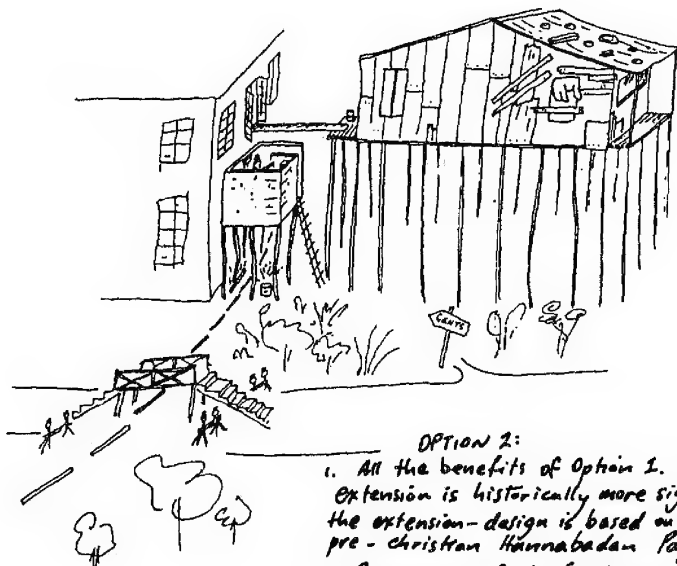 GENTS
OPTION 2:
1. All the benefits of Option 1.
extension is historically more sig
the extension-design is based on
pre-christian Hannabadan